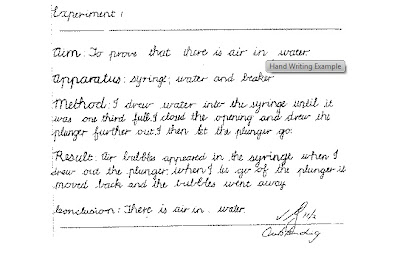 Experiment 1
Aim: To prove that there is air in water
Hand Writing Example
Apparatus: syringe, water and beaker
Method: I drew water into the syringe until it
was one third full. I closed the opening and drew the
plunger further out. I then let the plunger go.
Result: Air bubbles appeared in the syringe when I
drew out the plunger, when I let go of the plunger it
moved back and the bubbles went away
Conclusion: There is air in water.